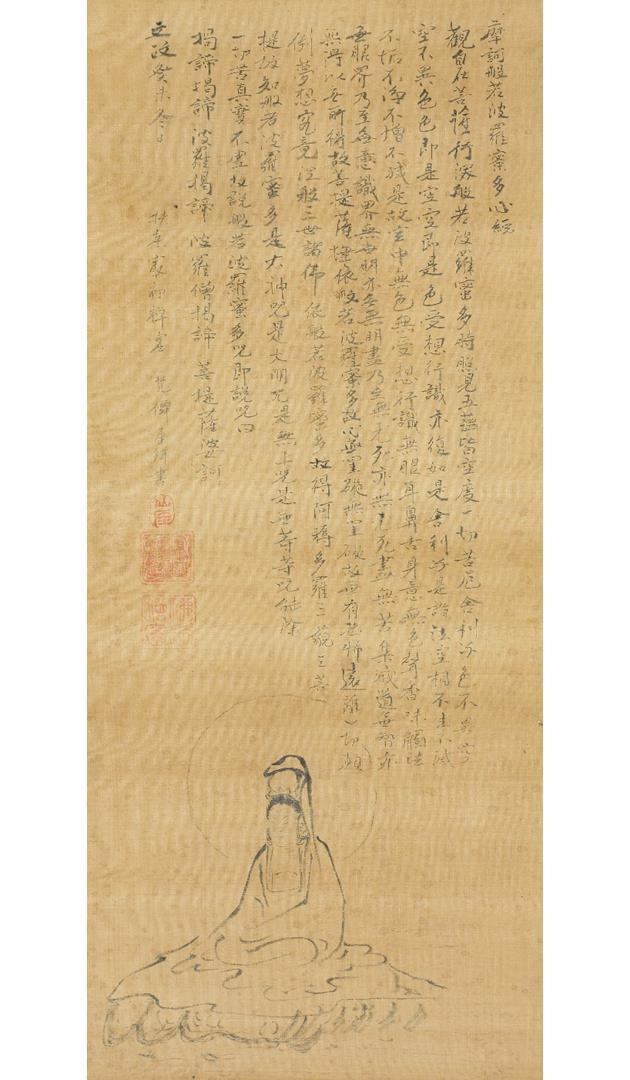 摩訶般若波羅蜜多心経
觀自在菩薩行深般若波羅蜜多時照見五蘊皆空度一切苦厄舍利子色不異空
空不異色色即是空空即是色受想行識亦復如是舍利子是諸法空相不生不滅
不垢不淨不增不減是故空中無色無受想行識無眼耳鼻舌身意無色聲香味觸法
無眼界乃至無意識界無無明亦無無明盡乃至無老死亦無老死盡無苦集滅道無智亦
無得以無所得故菩提薩埵依般若波羅蜜多故心無罣礙無罣礙故無有恐怖遠離一切顛
倒夢想究竟涅槃三世諸佛依般若波羅蜜多故得阿耨多羅三藐三菩
提故知般若波羅蜜多是大神咒是大明咒是無上咒是無等等咒能除
一切苦真實不虛故說般若波羅蜜多咒即說咒曰
揭諦揭諦 波羅揭諦 波羅僧揭諦 菩提薩婆訶
文政癸未冬日 書